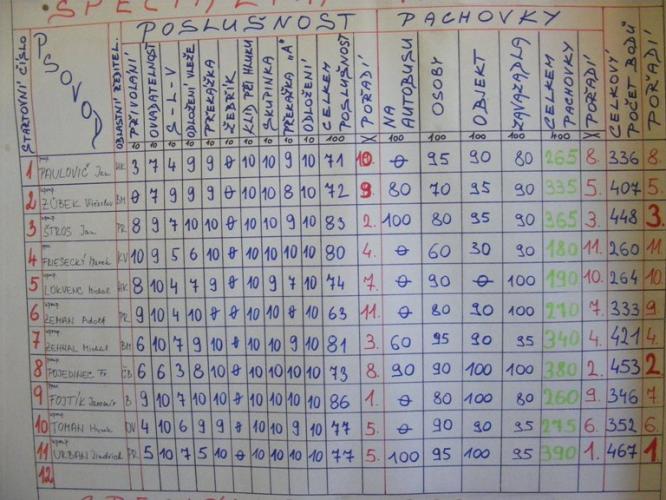 POSLUŠNOST PACHOVKY
STARTOVNÍ ČÍSLO PSOVOD OBLASTNÍ ŘEDITEL. PŘIVOLÁNÍ OVLADATELNOST S-L-V ODLOŽENÍ VLEŽE PŘEKÁŽKA ŽEBŘÍK KLID PŘI HLUKU SKUPINKA PŘEKÁŽKA "A" ODLOŽENÍ CELKEM POSLUŠNOST POŘADÍ NA AUTOBUSU OSOBY OBJEKT ZAVAZADLA CELKEM PACHOVKY POŘADÍ CELKOVÝ POČET BODŮ POŘADÍ
10 10 10 10 10 10 10 10 10 10 100 X 100 100 100 100 400 X
1 PAULOVIČ Jan HK 3 7 4 9 9 0 10 10 9 10 71 10. 0 95 90 80 265 8. 336 8
2 ZÚBEK BM 0 7 9 9 9 0 10 10 8 10 72 9. 80 70 95 90 335 5. 407 5
3 ŠTROS Jan PR 8 9 7 10 10 0 10 10 9 10 83 2. 100 80 95 90 365 3. 448 3
4 FRIESECKÝ Marek KV 10 9 5 6 10 0 10 10 10 10 80 4. 0 60 30 90 180 11. 260 11
5 LOKVENC Michal HK 8 10 4 7 9 0 10 9 7 10 74 7. 0 90 0 100 190 10. 264 10
6 ZEMAN Adolf PR 9 10 4 10 0 0 10 10 0 10 63 11. 0 80 90 100 270 7. 333 9
7 ZEHNAL Michal BM 6 10 7 9 10 0 10 10 9 10 81 3. 60 95 90 95 340 4. 421 4
8 POJEDINEC Fr ČB 6 6 3 8 10 0 10 10 10 10 73 8. 90 90 100 100 380 2. 453 2
9 FOJTÍK Jaromír B 9 10 7 10 10 0 10 10 10 10 86 1. 0 80 100 80 260 9. 346 7
10 TOMAN Hynek OV 4 10 6 9 9 0 10 10 9 10 77 5. 0 90 90 95 275 6. 352 6
11 URBAN Jindřich PR 5 10 7 5 10 0 10 10 10 10 77 5. 100 95 100 95 390 1. 467 1
12